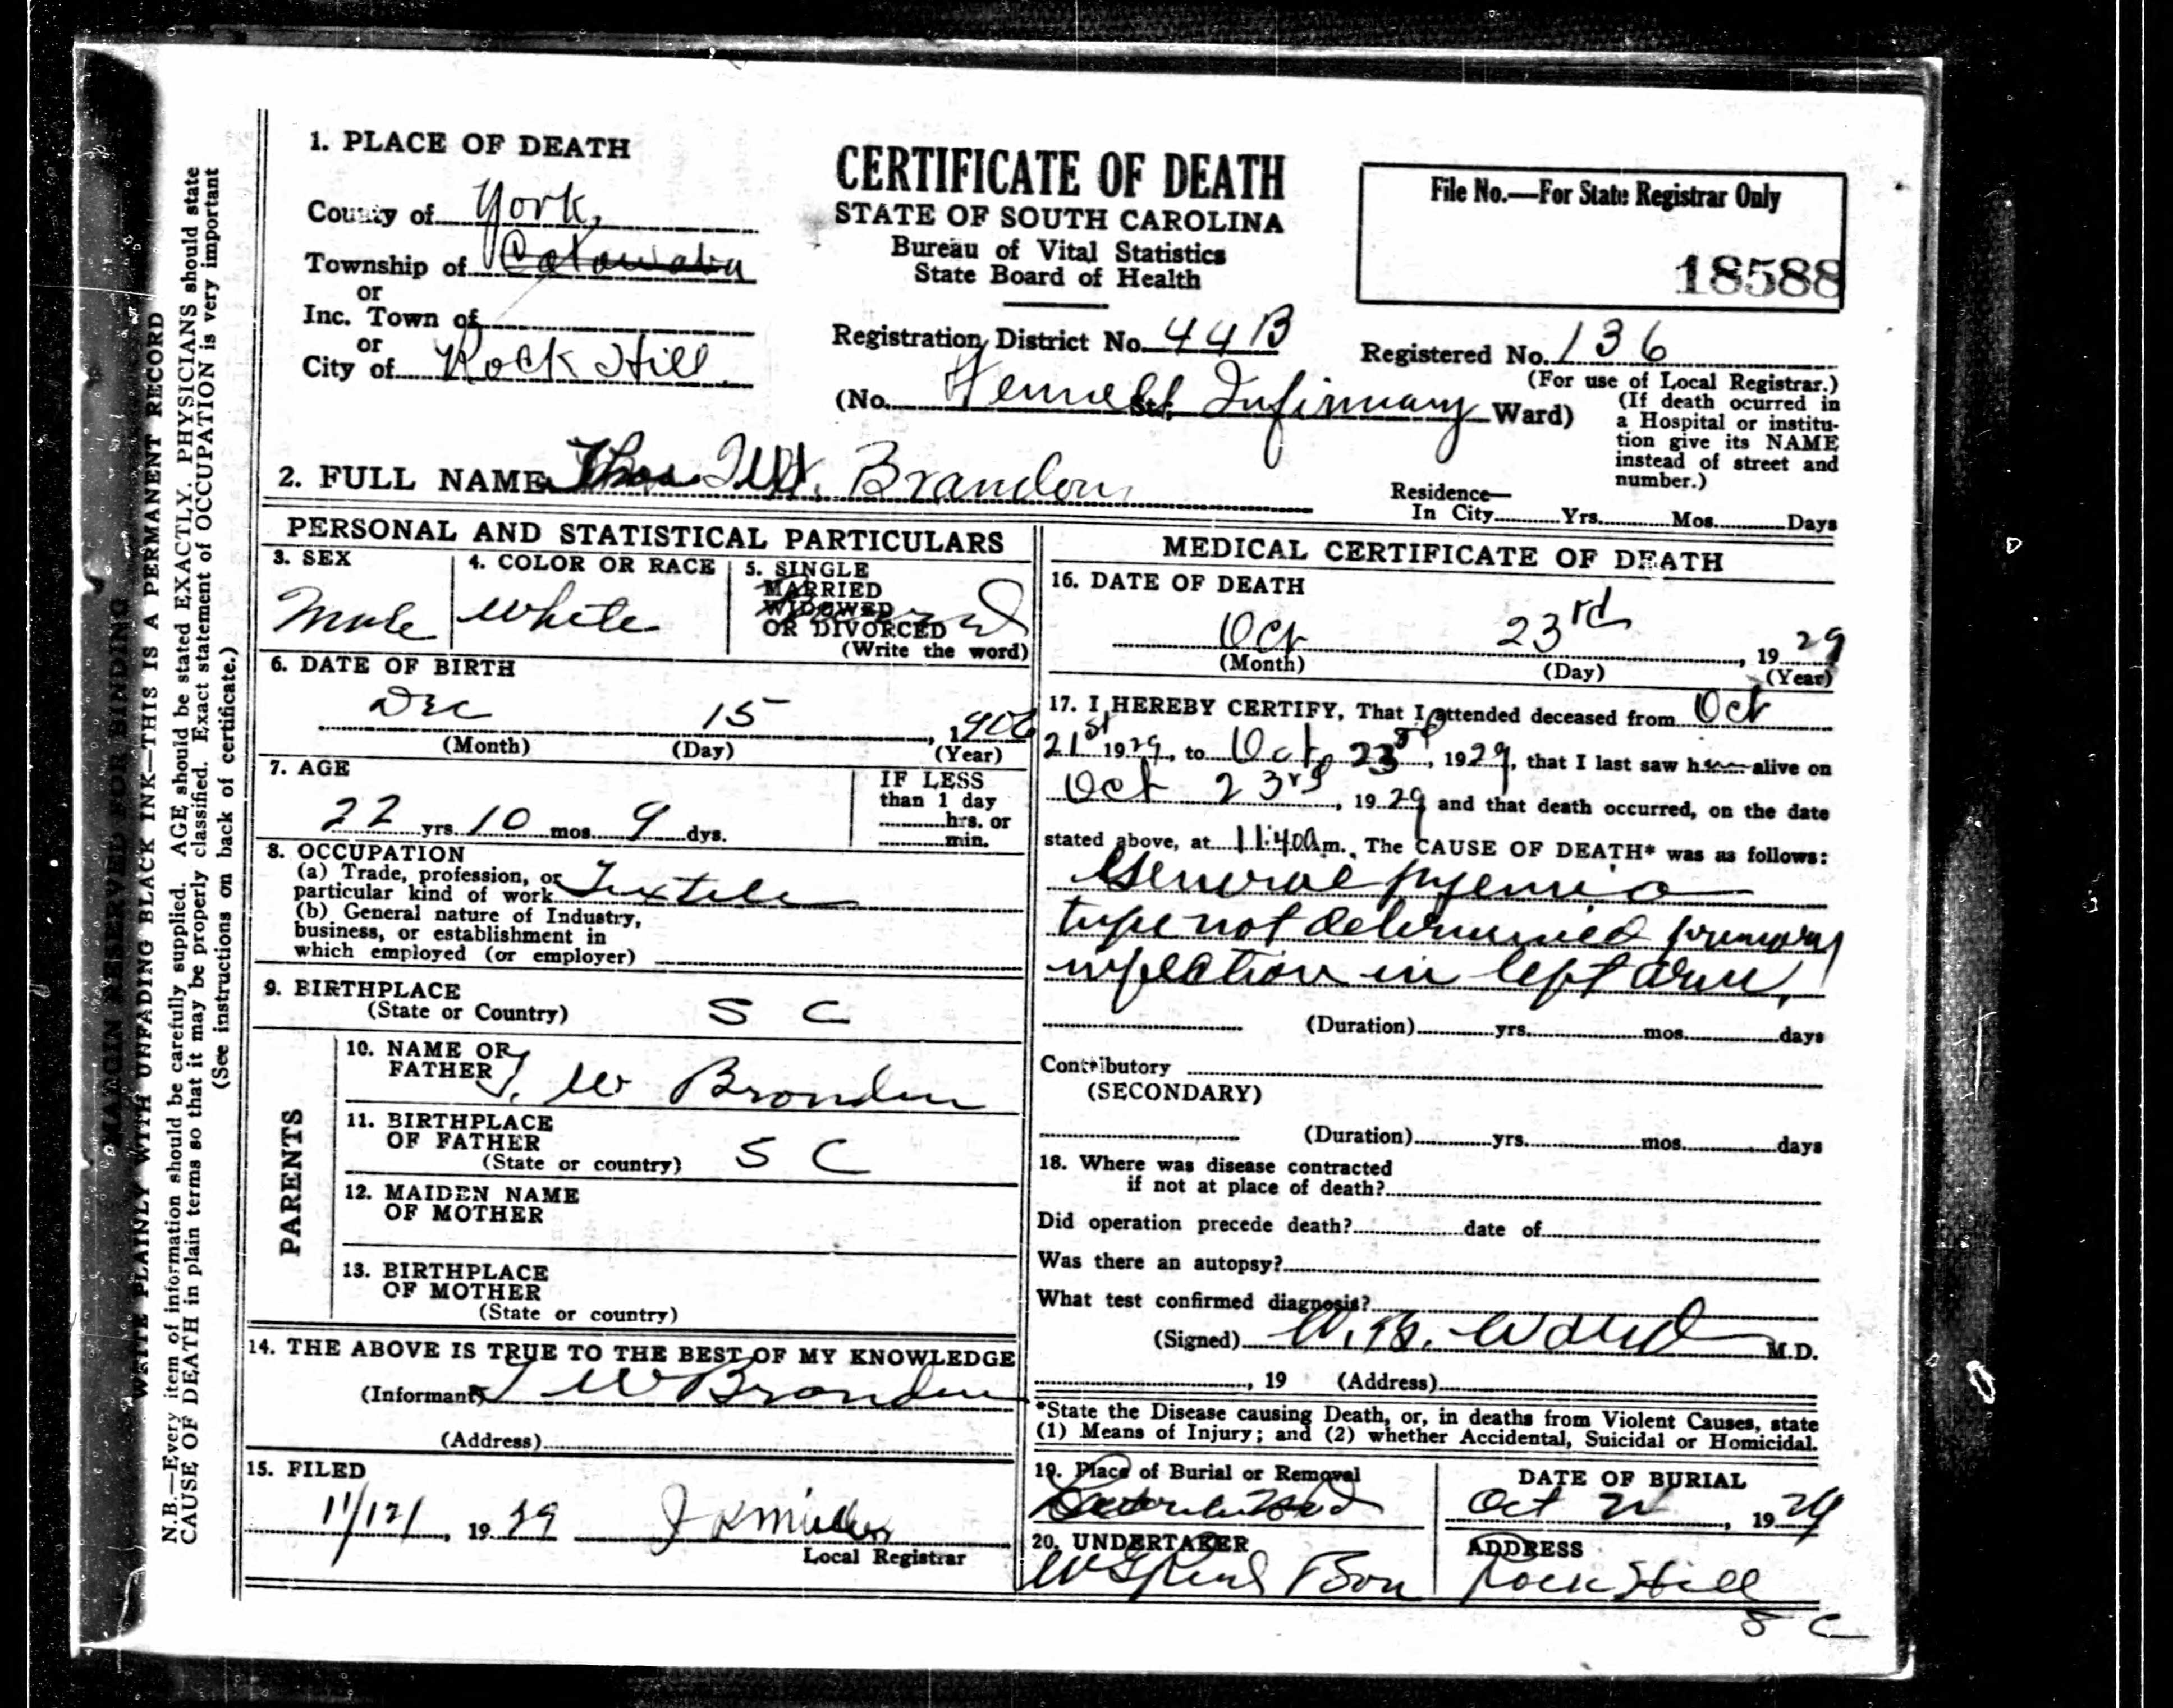 MARGIN RESERVED FOR BINDING
WRITE PLAINLY WITH UNFADING BLACK INK—THIS IS A PERMANENT RECORD
N.B.—Every item of information should be carefully supplied. AGE should be stated EXACTLY. PHYSICIANS should state
CAUSE OF DEATH in plain terms so that it may be properly classified. Exact statement of OCCUPATION is very important
(See instructions on back of certificate.)
1. PLACE OF DEATH
County of York,
Township of Catawaba
or
Inc. Town of
or
City of Rock Hill
CERTIFICATE OF DEATH
STATE OF SOUTH CAROLINA
Bureau of Vital Statistics
State Board of Health
Registration District No. 44B
(No. Fennell St.; Infirmary Ward)
File No.—For State Registrar Only
18588
Registered No. 136
(For use of Local Registrar.)
(If death ocurred in
a Hospital or institu-
tion give its NAME
instead of street and
number.)
2. FULL NAME Thos. Brandon
Residence—
In City Yrs. Mos. Days
PERSONAL AND STATISTICAL PARTICULARS
3. SEX
Male
4. COLOR OR RACE
White
5. SINGLE
MARRIED
WIDOWED
OR DIVORCED
(Write the word)
6. DATE OF BIRTH
Dec 15, 1906
(Month) (Day) (Year)
7. AGE
22 yrs. 10 mos. 9 dys.
IF LESS
than 1 day
hrs. or
min.
8. OCCUPATION
(a) Trade, profession, or
particular kind of work Textile
(b) General nature of Industry,
business, or establishment in
which employed (or employer)
9. BIRTHPLACE
(State or Country) S C
PARENTS
10. NAME OF
FATHER T. W Brandon
11. BIRTHPLACE
OF FATHER
(State or country) S C
12. MAIDEN NAME
OF MOTHER
13. BIRTHPLACE
OF MOTHER
(State or country)
14. THE ABOVE IS TRUE TO THE BEST OF MY KNOWLEDGE
(Informant) T W Brandon
(Address)
15. FILED
11/12/, 1929 J R Miller
Local Registrar
MEDICAL CERTIFICATE OF DEATH
16. DATE OF DEATH
Oct 23rd, 1929
(Month) (Day) (Year)
17. I HEREBY CERTIFY, That I attended deceased from Oct
21st 1929, to Oct, 23rd, 1929, that I last saw h alive on
Oct 23rd, 1929 and that death occurred, on the date
stated above, at 11:40am. The CAUSE OF DEATH* was as follows:
General pyemia
type not determined primary
infection in left arm,
(Duration) yrs. mos. days
Contributory
(SECONDARY)
(Duration) yrs. mos. days
18. Where was disease contracted
if not at place of death?
Did operation precede death? date of
Was there an autopsy?
What test confirmed diagnosis?
(Signed) W. B. Ward M.D.
, 19 (Address)
*State the Disease causing Death, or, in deaths from Violent Causes, state
(1) Means of Injury; and (2) whether Accidental, Suicidal or Homicidal.
19. Place of Burial or Removal
DATE OF BURIAL
Oct, 1929
20. UNDERTAKER
ADDRESS
Rock Hill
S C